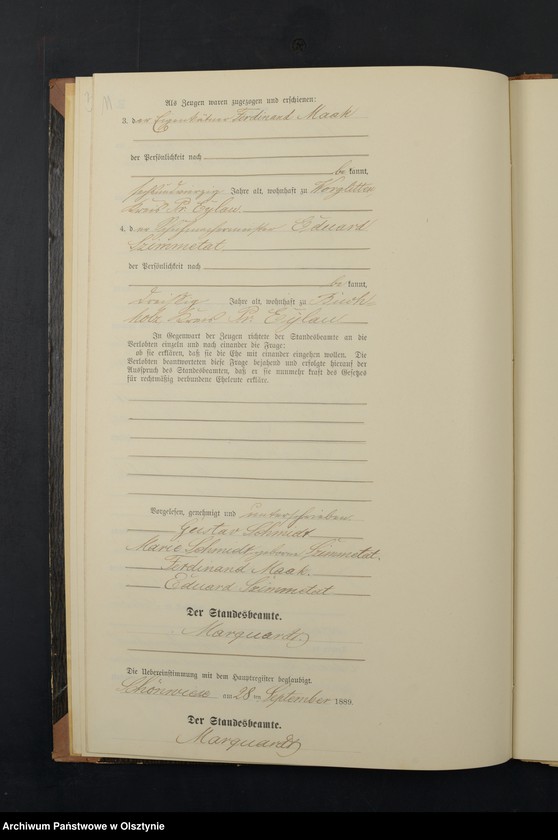 Als Zeugen waren zugezogen und erschienen:
3. der Eigenkätner Ferdinand Maak
der Persönlichkeit nach
be kannt,
Jahre alt, wohnhaft zu Worglitten
Kreis Pr. Eylau
4. der Schuhmachermeister Eduard
Szimmetat
der Persönlichkeit nach
be kannt,
dreißig Jahre alt, wohnhaft zu Buch-
holz Kreis Pr. Eylau
In Gegenwart der Zeugen richtete der Standesbeamte an die
Verlobten einzeln und nach einander die Frage:
ob sie erklären, daß sie die Ehe mit einander eingehen wollen. Die
Verlobten beantworteten diese Frage bejahend und erfolgte hierauf der
Ausspruch des Standesbeamten, daß er sie nunmehr kraft des Gesetzes
für rechtmäßig verbundene Eheleute erkläre.
Vorgelesen, genehmigt und unterschrieben
Gustav Schmidt
Marie Schmidt geborene Szimmetat.
Ferdinand Maak.
Eduard Szimmetat
Der Standesbeamte.
Marquardt
Die Uebereinstimmung mit dem Hauptregister beglaubigt.
Schönwiese am 28 ten September 1889.
Der Standesbeamte.
Marquardt
Archiwum Państwowe w Olsztynie